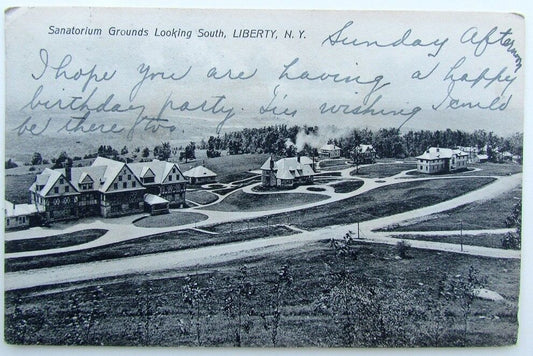 Sanatorium Grounds Looking South, LIBERTY, N.Y.
Sunday Afternoon
I hope you are having a happy
birthday party. I'm wishing I could
be there too.